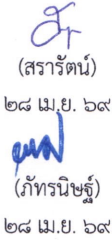 (สรารัตน์)
๒๘ เม.ย. ๖๙
(ภัทรนิษฐ์)
๒๘ เม.ย. ๖๙